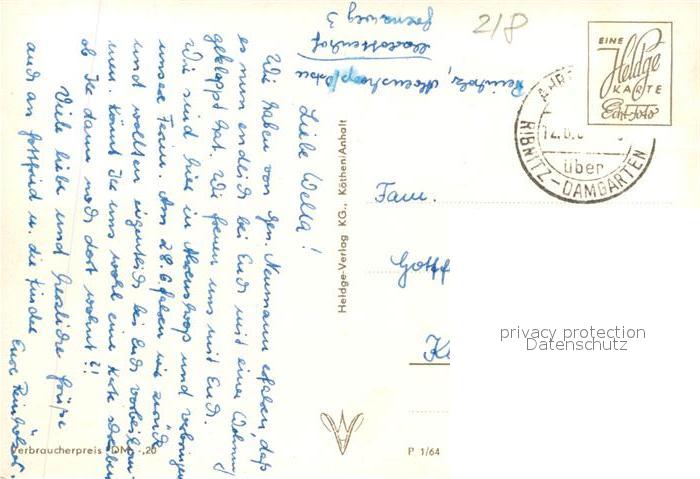 218
EINE
Heldge
KARTE
Echt Foto
AHR
12.6.6
über
RIBNITZ-DAMGARTEN
Reinholz, Ahrenshoop/Ostsee
Bernsweg 3
Fam.
Gottf
K
privacy protection
Datenschutz
Heldge-Verlag KG., Köthen/Anhalt
P 1/64
Verbraucherpreis DM -,20
Liebe Wella!
Wir haben von Gen. Neumann erfahren, daß
es nun endlich bei Euch mit einer Wohnung
geklappt hat. Wir freuen uns mit Euch.
Wir sind hier in Ahrenshoop und verbringen
unsere Ferien. Am 28.6. fahren wir zurück
und wollten eigentlich bei Euch vorbeikom-
men. Könnt Ihr uns wohl eine Karte schreiben
ob Ihr dann noch dort wohnt?!
Viele liebe und herzliche Grüße
auch an Gottfried u. die Kinder
Eure Reinhölzer.